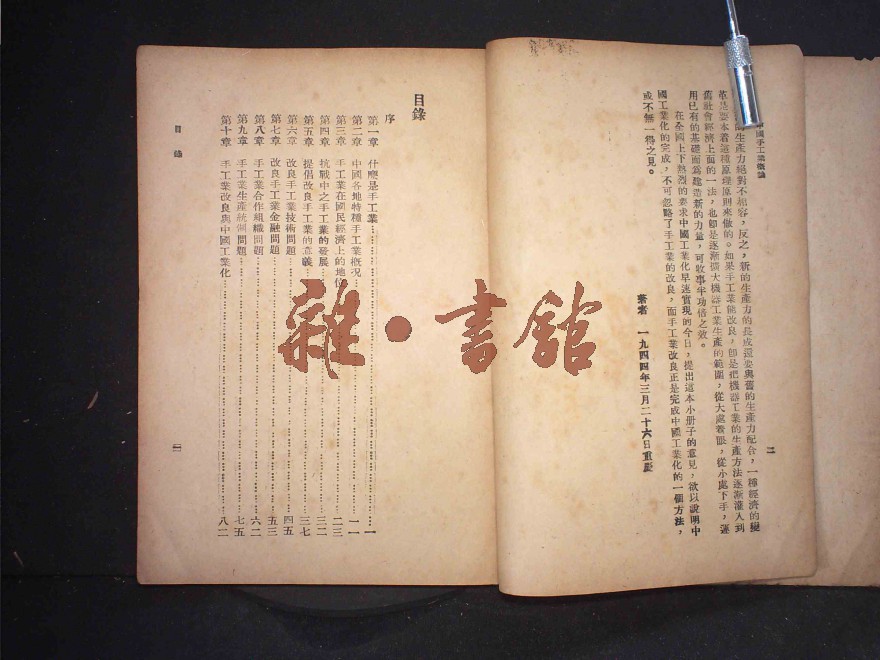 中國手工業概論
二
的生產力絕對不相容，反之，新的生產力的長成還要與舊的生產力配合，一種經濟的變
革是要本着這種原理原則來做的。如果手工業能改良，卽是把機器工業的生產方法逐漸灌入到
舊社會經濟上面的一法，也卽是逐漸擴大機器工業生產的範圍，從大處着眼，從小處下手，運
用已有的基礎而爲建造新的力量，可收事半功倍之效。
在全國上下熱烈的要求中國工業化早速實現的今日，提出這本小册子的意見，欲以說明中
國工業化的完成，不可忽略了手工業的改良，而手工業改良正是完成中國工業化的一個方法，
或不無一得之見。
著者 一九四四年三月二十六日重慶
目錄
序
第一章 什麽是手工業……一
第二章 中國各地特種手工業概況……一一
第三章 手工業在國民經濟上的地位……二三
第四章 抗戰中之手工業的發展……三二
第五章 提倡改良手工業的意義……三七
第六章 改良手工業技術問題……四五
第七章 改良手工業金融問題……五三
第八章 手工業合作組織問題……六二
第九章 手工業生產統制問題……七五
第十章 手工業改良與中國工業化……八二
目錄
一
雜·書館